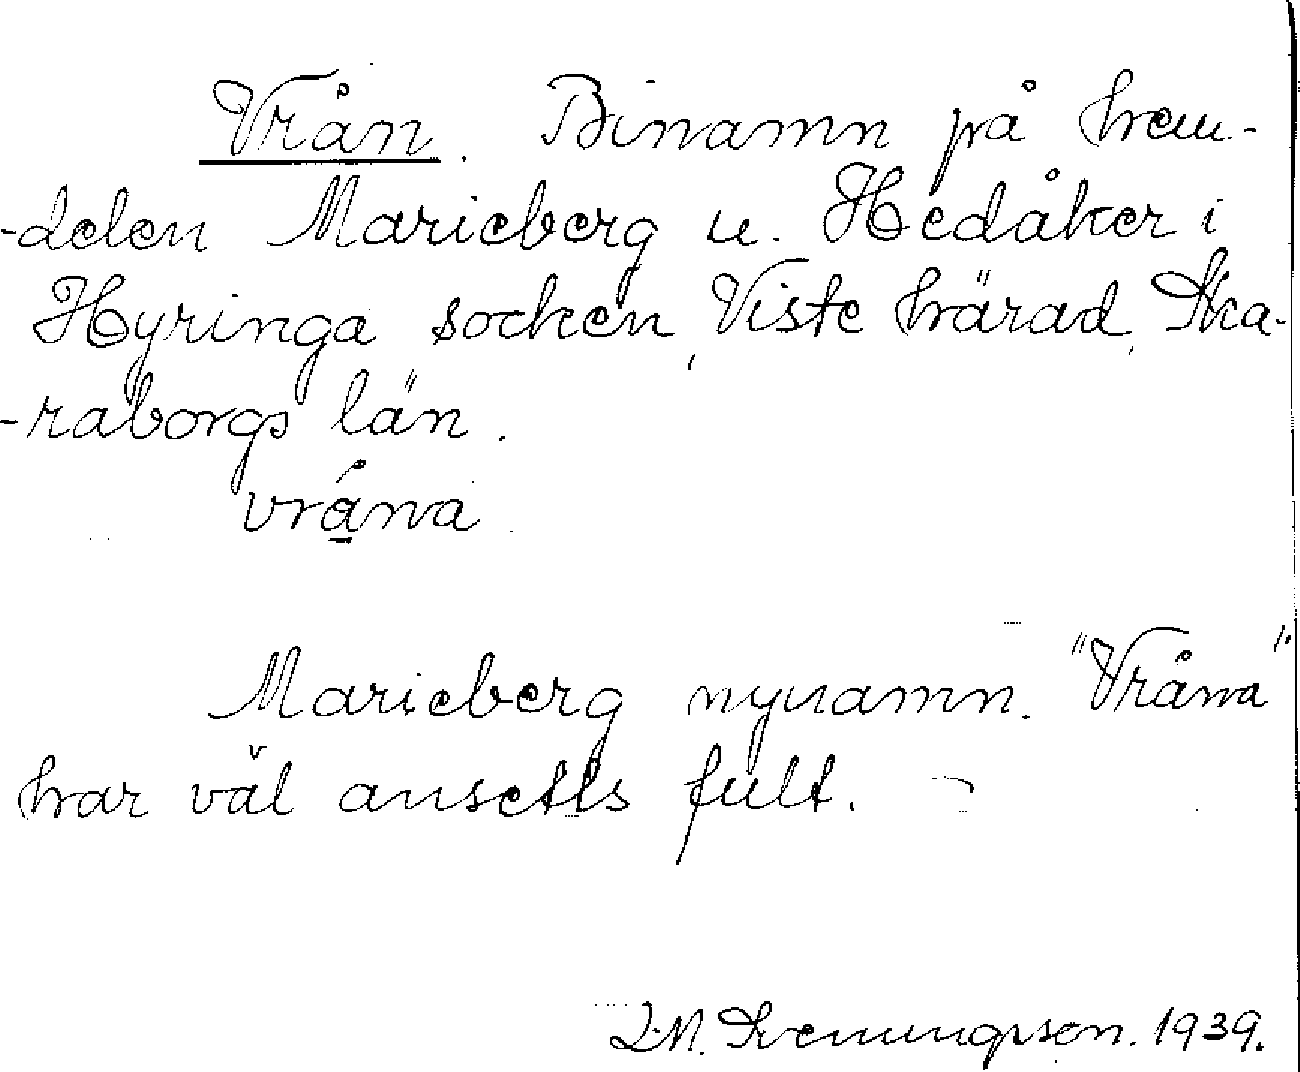 Vrån. Binamn på hem-
-delen Marieberg u. Hedåker i
Hyringa socken, Viste härad, Ska-
-raborgs län.
vråna
Marieberg nynamn. "Vråna"
har väl ansetts fult.
Svenungsson. 1939.